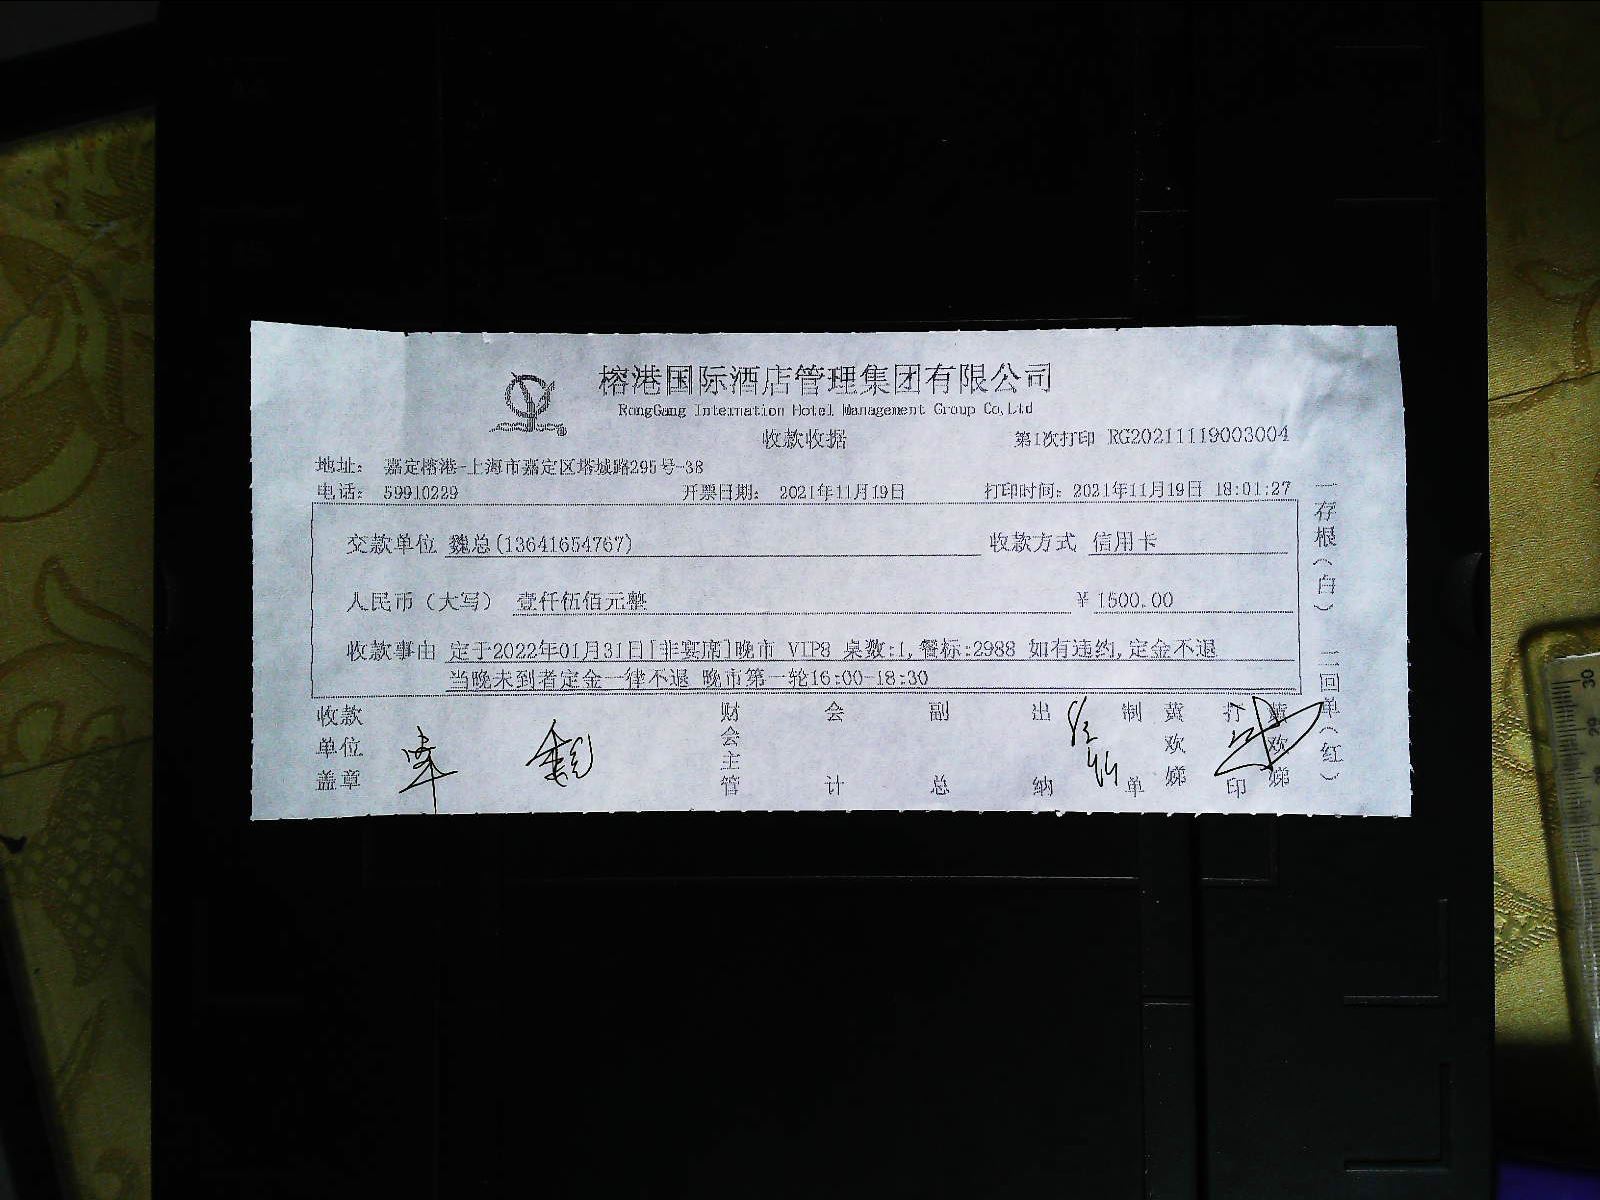 榕港国际酒店管理集团有限公司
RongGang Internation Hotel Management Group Co,Ltd
收款收据
第1次打印 RG20211119003004
地址： 嘉定榕港-上海市嘉定区塔城路295号-38
电话： 59910229 开票日期： 2021年11月19日 打印时间：2021年11月19日 18:01:27
交款单位 魏总(13641654767) 收款方式 信用卡
人民币（大写） 壹仟伍佰元整 ￥1500.00
收款事由 定于2022年01月31日[非宴席]晚市 VIP8 桌数:1,餐标:2988 如有违约,定金不退
当晚未到者定金一律不退 晚市第一轮16:00-18:30
收款单位盖章 财会主管 会计 副总 出纳 制单 黄欢娣 打印 黄欢娣
一存根（白） 二回单（红）
30